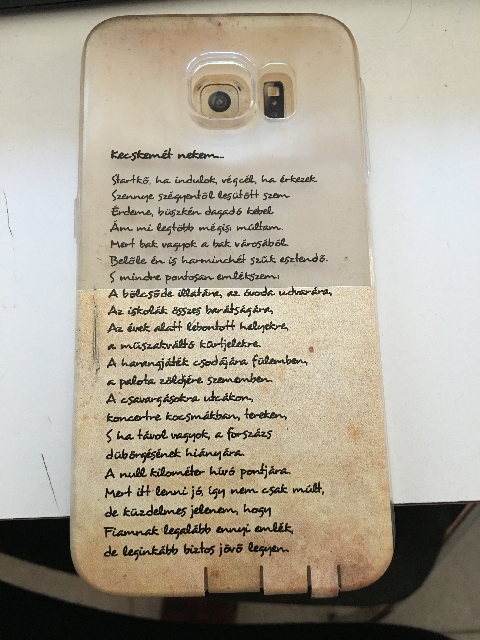 Kecskemét nekem...
Startkő, ha indulok, végcél, ha érkezek
Szennye szégyentől lesütött szem
Érdeme, büszkén dagadó kebel
Ám mi legtöbb mégis: múltam.
Mert bak vagyok a bak városából
Belőle én is harminchét szűk esztendő.
S mindre pontosan emlékszem:
A bölcsőde illatára, az óvoda udvarára,
Az iskolák összes barátságára,
Az évek alatt lebontott helyekre,
a műszakváltó kürtjelekre.
A harangjáték csodájára fülemben,
a palota zöldjére szememben.
A csavargásokra utcákon,
koncertre kocsmákban, tereken,
S ha távol vagyok, a forszázs
dübörgésének hiányára.
A null kilométer hívó pontjára.
Mert itt lenni jó, így nem csak múlt,
de küzdelmes jelenem, hogy
Fiamnak legalább ennyi emlék,
de leginkább biztos jövő legyen.